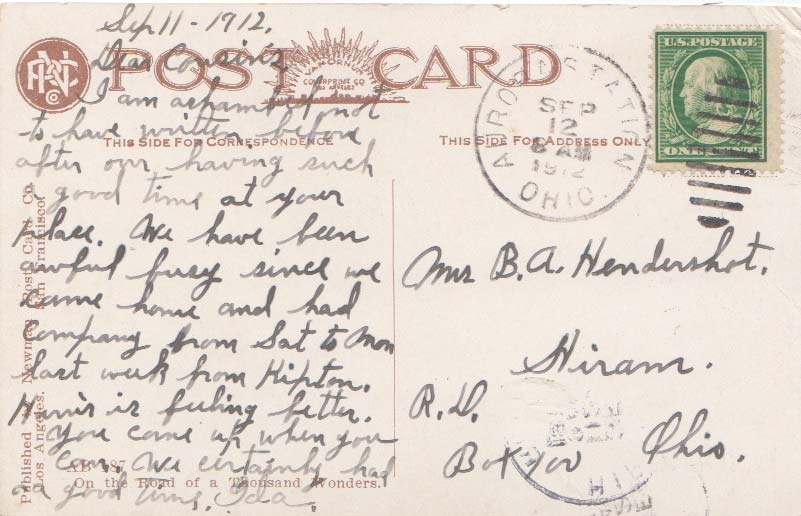 Sep 11 - 1912.
Dear Cousins,
I am ashamed of not
to have written before
after our having such
a good time at your
place. We have been
awful busy since we
came home and had
Company from Sat to Mon
last week from Kipton.
is feeling better.
You come up when you
can. We certainly had
a good time, Ida.
POST CARD
VAN ORNUM
COLORPRINT CO
LOS ANGELES
THIS SIDE FOR CORRESPONDENCE
THIS SIDE FOR ADDRESS ONLY
AURORA STATION
SEP
12
8 AM
1912
OHIO.
U.S. POSTAGE
ONE CENT
Mrs B. A. Hendershot.
Hiram.
R.D.
Box 100 Ohio.
HIR
Published by Newman Post Card Co.
Los Angeles. San Francisco
AB 87
On the Road of a Thousand Wonders.